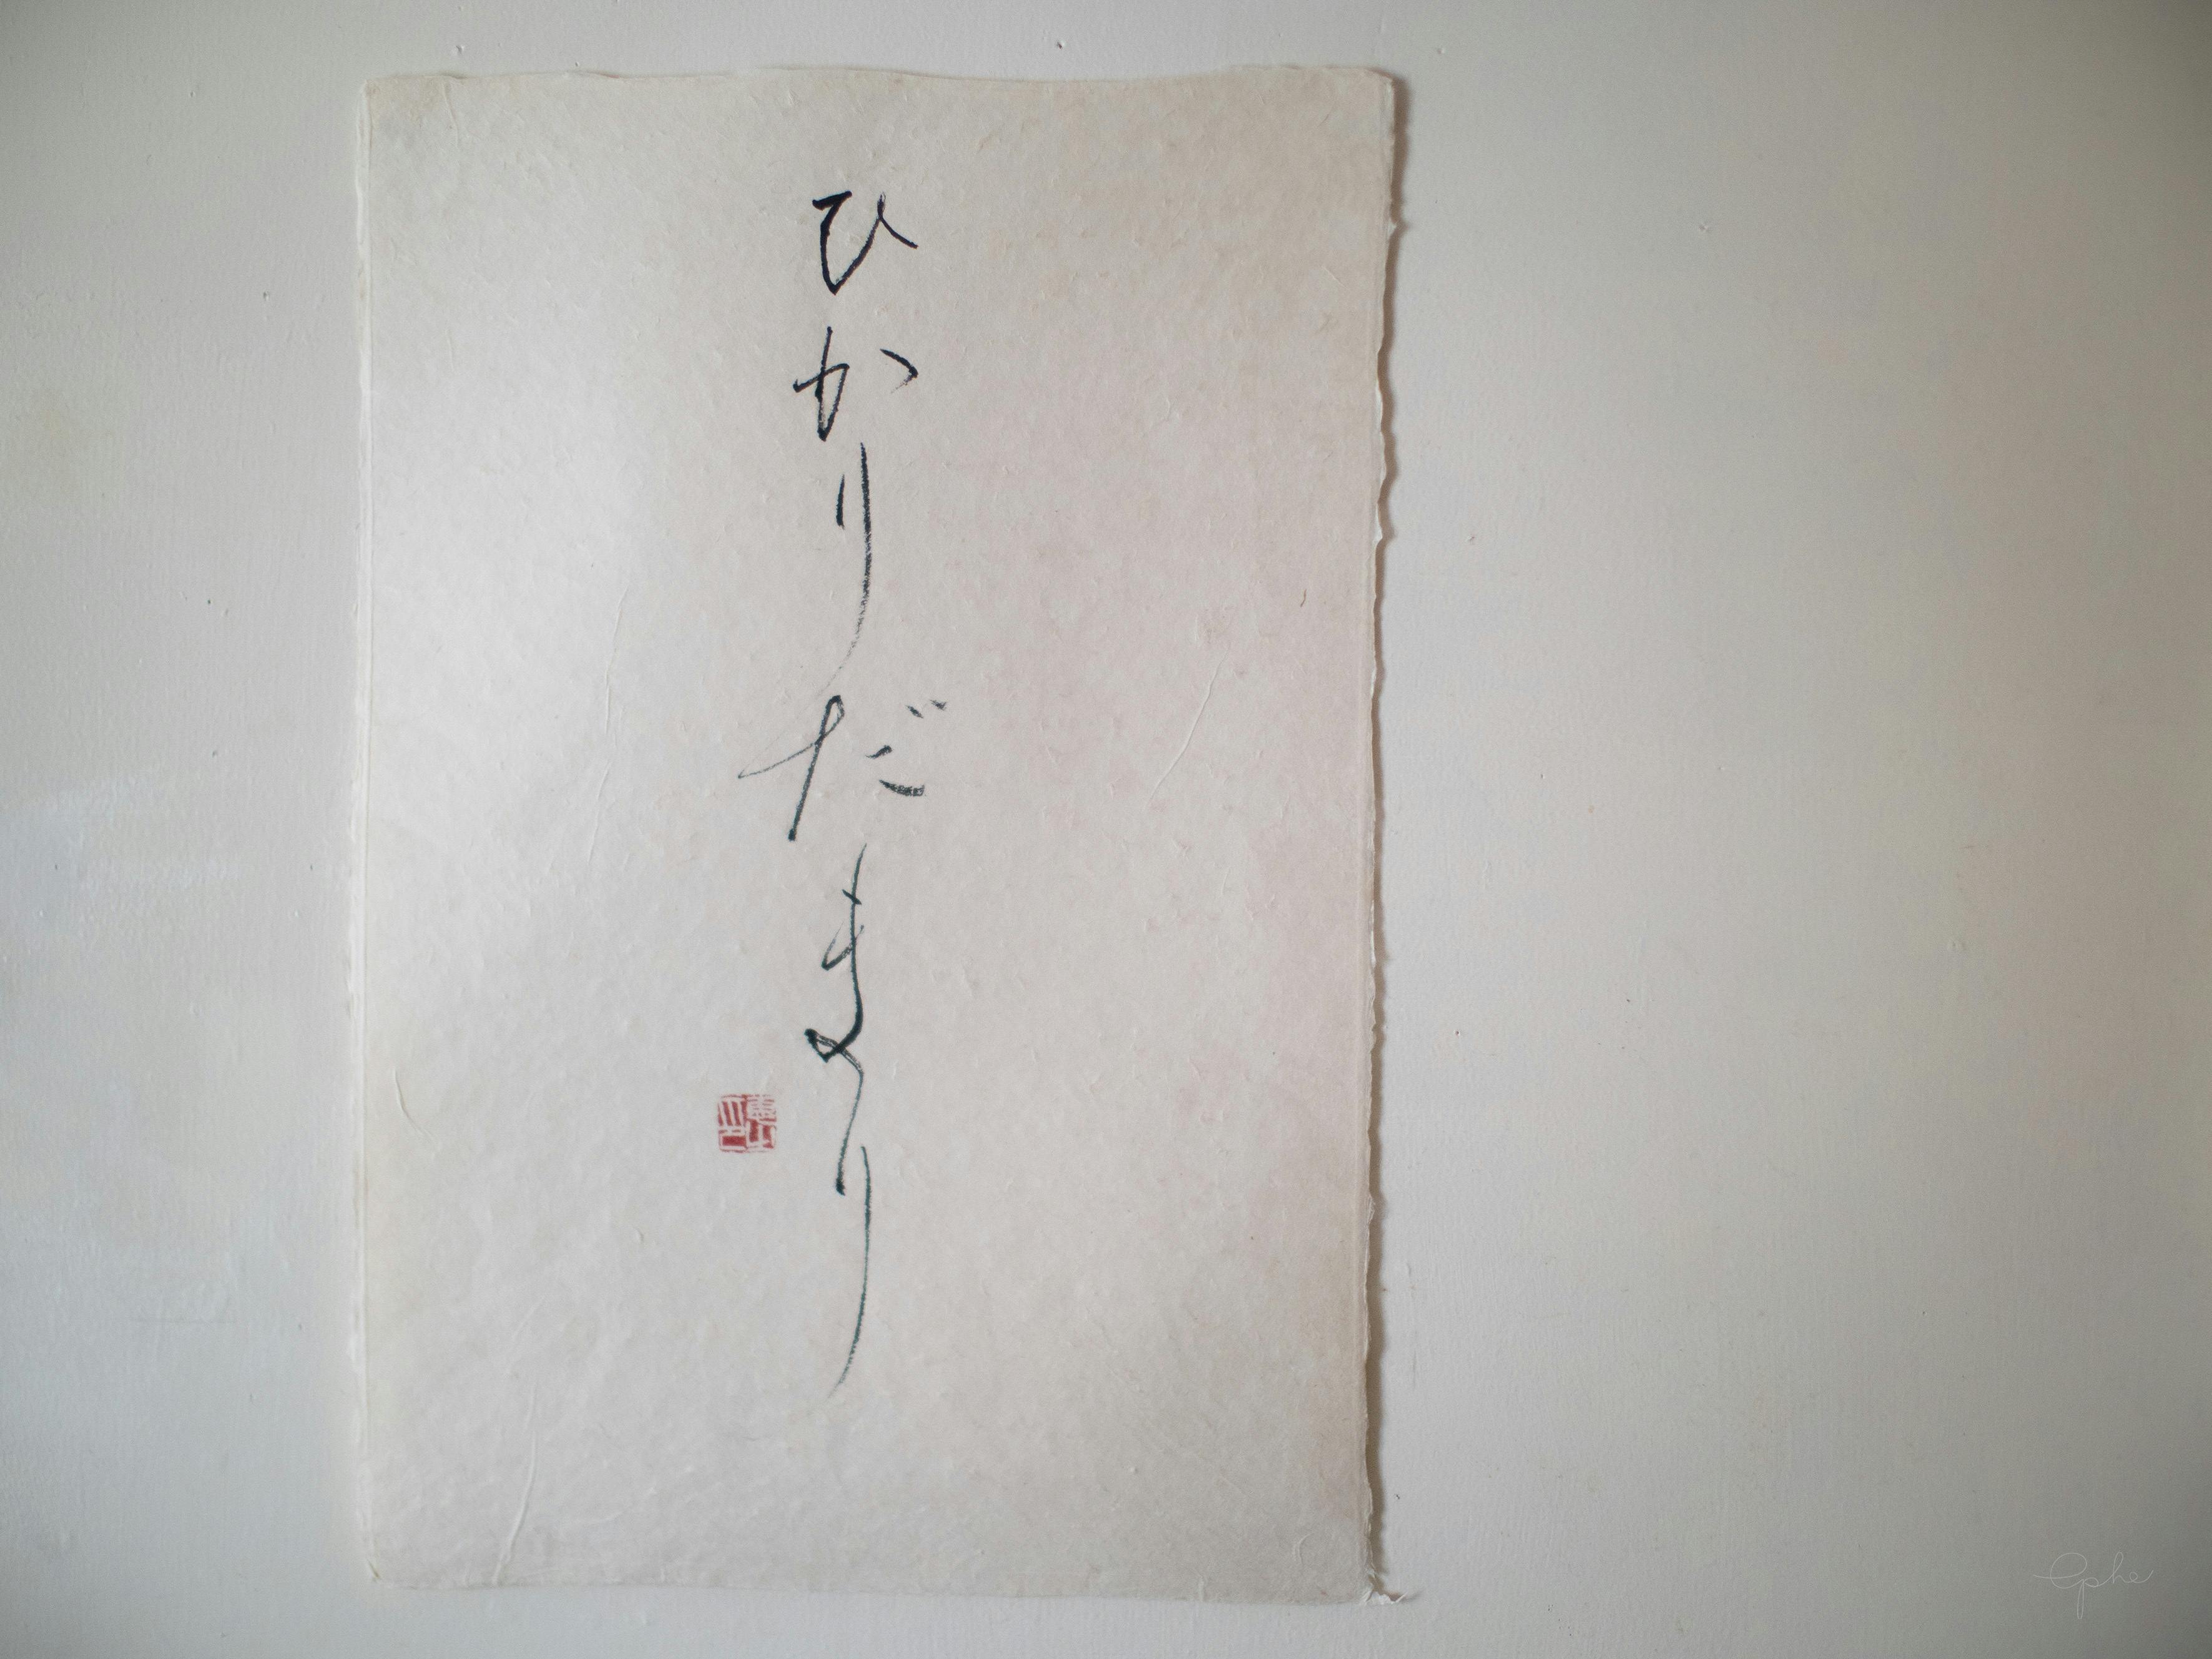 ひかりだまり
Ephe